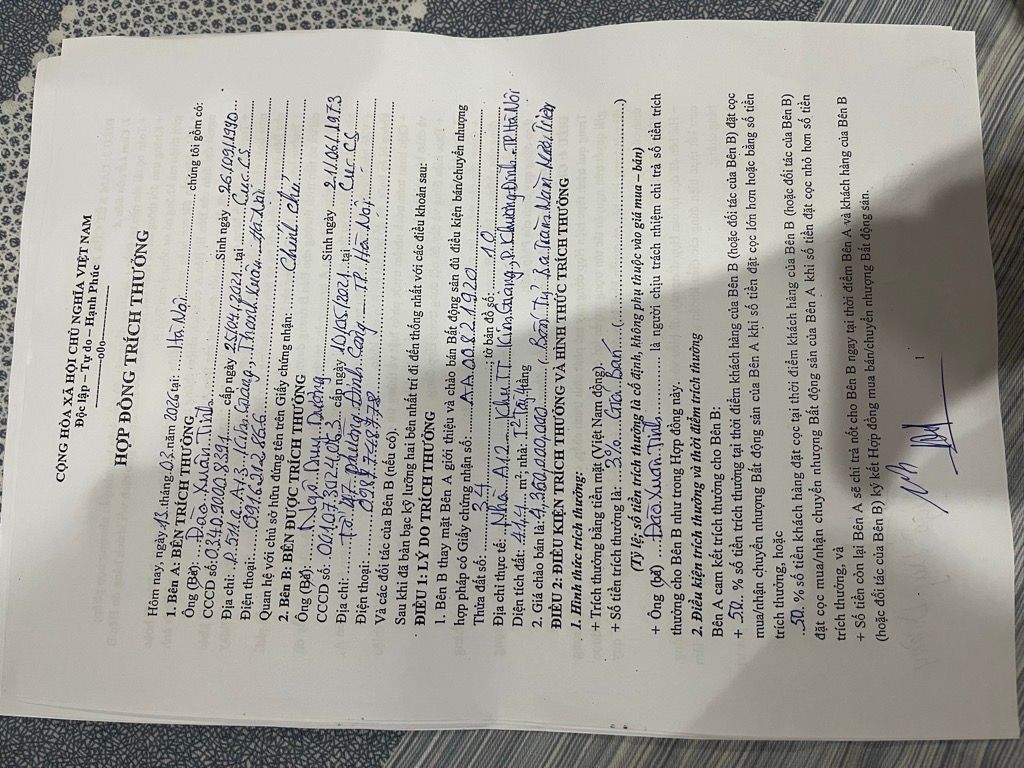 CỘNG HÒA XÃ HỘI CHỦ NGHĨA VIỆT NAM
Độc lập - Tự do - Hạnh Phúc
-----------o0o-----------
HỢP ĐỒNG TRÍCH THƯỞNG
Hôm nay, ngày 15 tháng 03 năm 2026 tại: Hà Nội chúng tôi gồm có:
1. Bên A: BÊN TRÍCH THƯỞNG
Ông (Bà): Đào Xuân Tình Sinh ngày 26/09/1990
CCCD số: 034090008391 cấp ngày 25/04/2021 tại Cục CS
Địa chỉ: P. 511a A13 Kim Giang, Thanh Xuân Hà Nội
Điện thoại: 0916212866
Quan hệ với chủ sở hữu đứng tên trên Giấy chứng nhận: Chính chủ
2. Bên B: BÊN ĐƯỢC TRÍCH THƯỞNG
Ông (Bà): Ngô Duy Dương Sinh ngày 21/06/1973
CCCD số: 001073024053 cấp ngày 10/05/2021 tại Cục CS
Địa chỉ: Tổ 47 phường Định Công TP. Hà Nội
Điện thoại: 0987748778
Và các đối tác của Bên B (nếu có).
Sau khi đã bàn bạc kỹ lưỡng hai bên nhất trí đi đến thống nhất với các điều khoản sau:
ĐIỀU 1: LÝ DO TRÍCH THƯỞNG
1. Bên B thay mặt Bên A giới thiệu và chào bán Bất động sản đủ điều kiện bán/chuyển nhượng
hợp pháp có Giấy chứng nhận số: AA00821920
Thửa đất số: 34 tờ bản đồ số: 10
Địa chỉ thực tế: Nhà A12 Khu TT Kim Giang, P. Khương Đình TP Hà Nội
Diện tích đất: 41,4 m²; nhà: T2 Tòa 4 tầng
2. Giá chào bán là: 4,360,000,000 (Bốn Tỷ ba Trăm Sáu Mươi Triệu
ĐIỀU 2: ĐIỀU KIỆN TRÍCH THƯỞNG VÀ HÌNH THỨC TRÍCH THƯỞNG
1. Hình thức trích thưởng:
+ Trích thưởng bằng tiền mặt (Việt Nam đồng).
+ Số tiền trích thưởng là: 3% Giá Bán (........)
(Tỷ lệ, số tiền trích thưởng là cố định, không phụ thuộc vào giá mua – bán)
+ Ông (bà) Đào Xuân Tình là người chịu trách nhiệm chi trả số tiền trích
thưởng cho Bên B như trong Hợp đồng này.
2. Điều kiện trích thưởng và thời điểm trích thưởng
Bên A cam kết trích thưởng cho Bên B:
+ 50 % số tiền trích thưởng tại thời điểm khách hàng của Bên B (hoặc đối tác của Bên B) đặt cọc
mua/nhận chuyển nhượng Bất động sản của Bên A khi số tiền đặt cọc lớn hơn hoặc bằng số tiền
trích thưởng, hoặc
50 % số tiền khách hàng đặt cọc tại thời điểm khách hàng của Bên B (hoặc đối tác của Bên B)
đặt cọc mua/nhận chuyển nhượng Bất động sản của Bên A khi số tiền đặt cọc nhỏ hơn số tiền
trích thưởng, và
+ Số tiền còn lại Bên A sẽ chi trả nốt cho Bên B ngay tại thời điểm Bên A và khách hàng của Bên B
(hoặc đối tác của Bên B) ký kết Hợp đồng mua bán/chuyển nhượng Bất động sản.
1